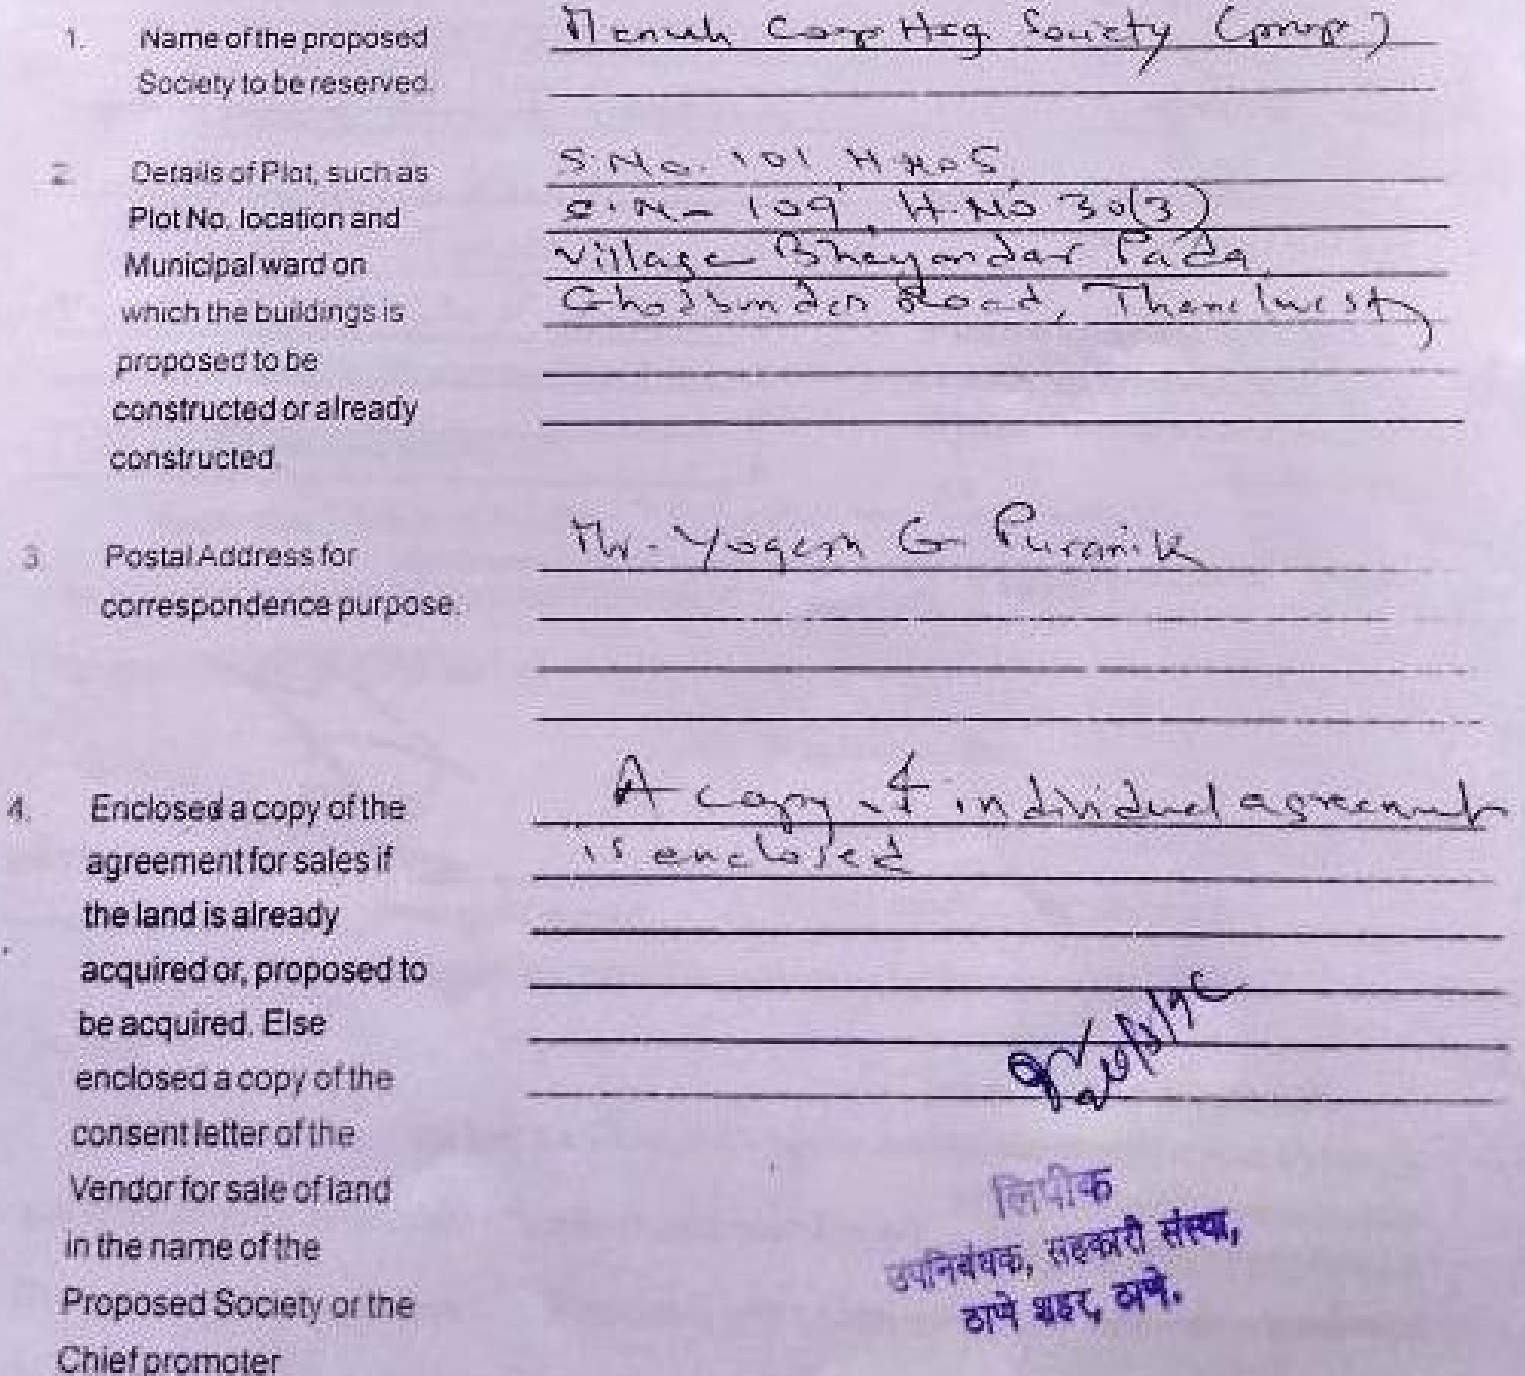 1. Name of the proposed
Society to be reserved.
Coop Hsg. Society (prop)
2. Details of Plot, such as
Plot No. location and
Municipal ward on
which the buildings is
proposed to be
constructed or already
constructed.
S.No. 101, H.No 5,
S.No 109, H.No 30(3)
Village Bhayandar Pada,
Ghodbunder Road, Thane (west)
3. Postal Address for
correspondence purpose.
Mr. Yogesh G. Puranik
4. Enclosed a copy of the
agreement for sales if
the land is already
acquired or, proposed to
be acquired. Else
enclosed a copy of the
consent letter of the
Vendor for sale of land
in the name of the
Proposed Society or the
Chief promoter
A copy of individual agreement
is enclosed
लिपीक
उपनिबंधक, सहकारी संस्था,
ठाणे शहर, ठाणे.